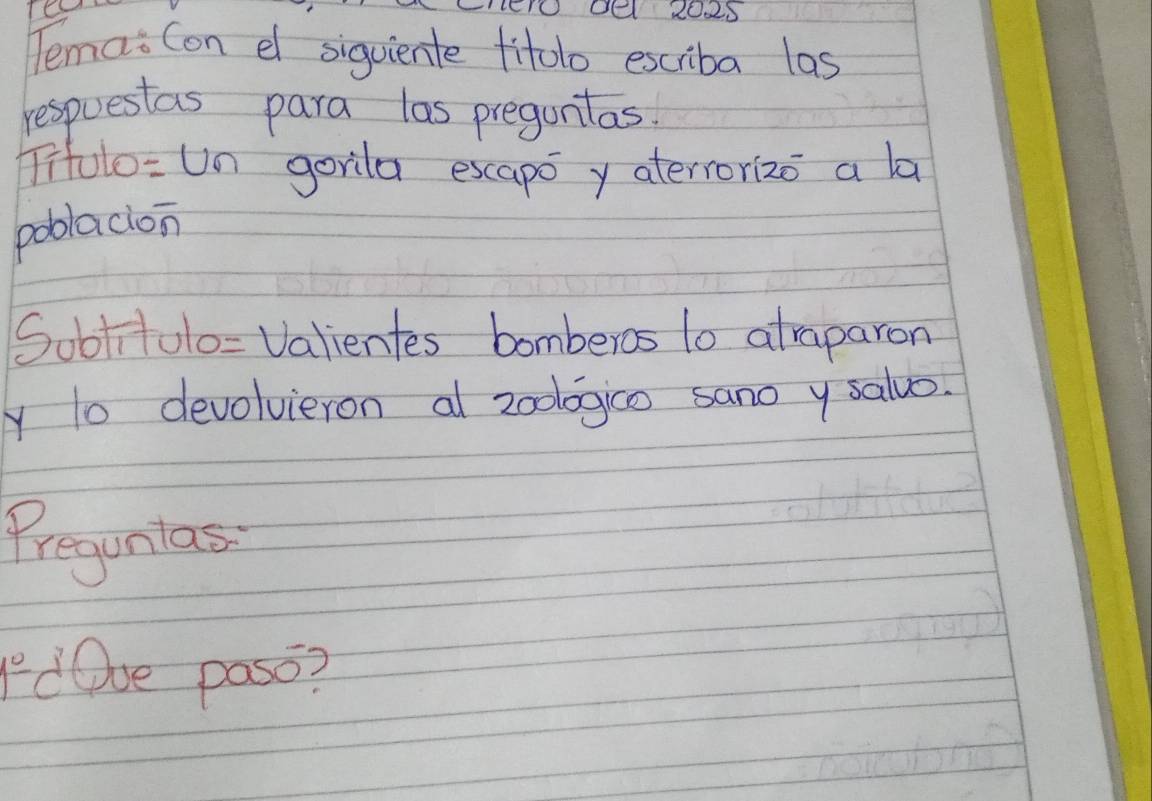 del 2025
Tema: Con el siguiente titulo escriba las
respuestas para las preguntas.
Titulo= Un gorila escapó y aterrorizó a la
población
Subtitulo= Valientes bomberos lo atraparon
y lo devolvieron al zoológico sano y salvo.
Preguntas=
1º ¿Que pasó?